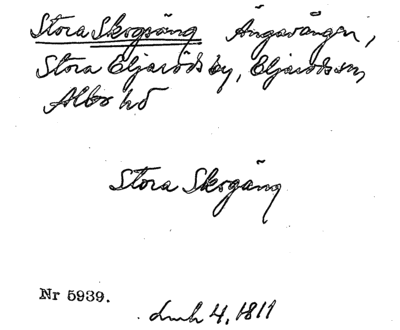 Stora Skogsäng Ängavången,
Stora Eljaröds by, Eljaröds sn,
Albo hd
Stora Skogäng
Nr 5939.
Lmh 4, 1811